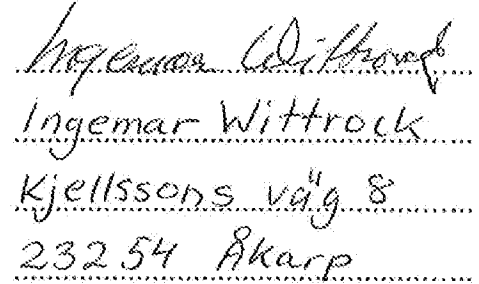 Ingemar Wittrock
Ingemar Wittrock
Kjellssons väg 8
232 54 Åkarp